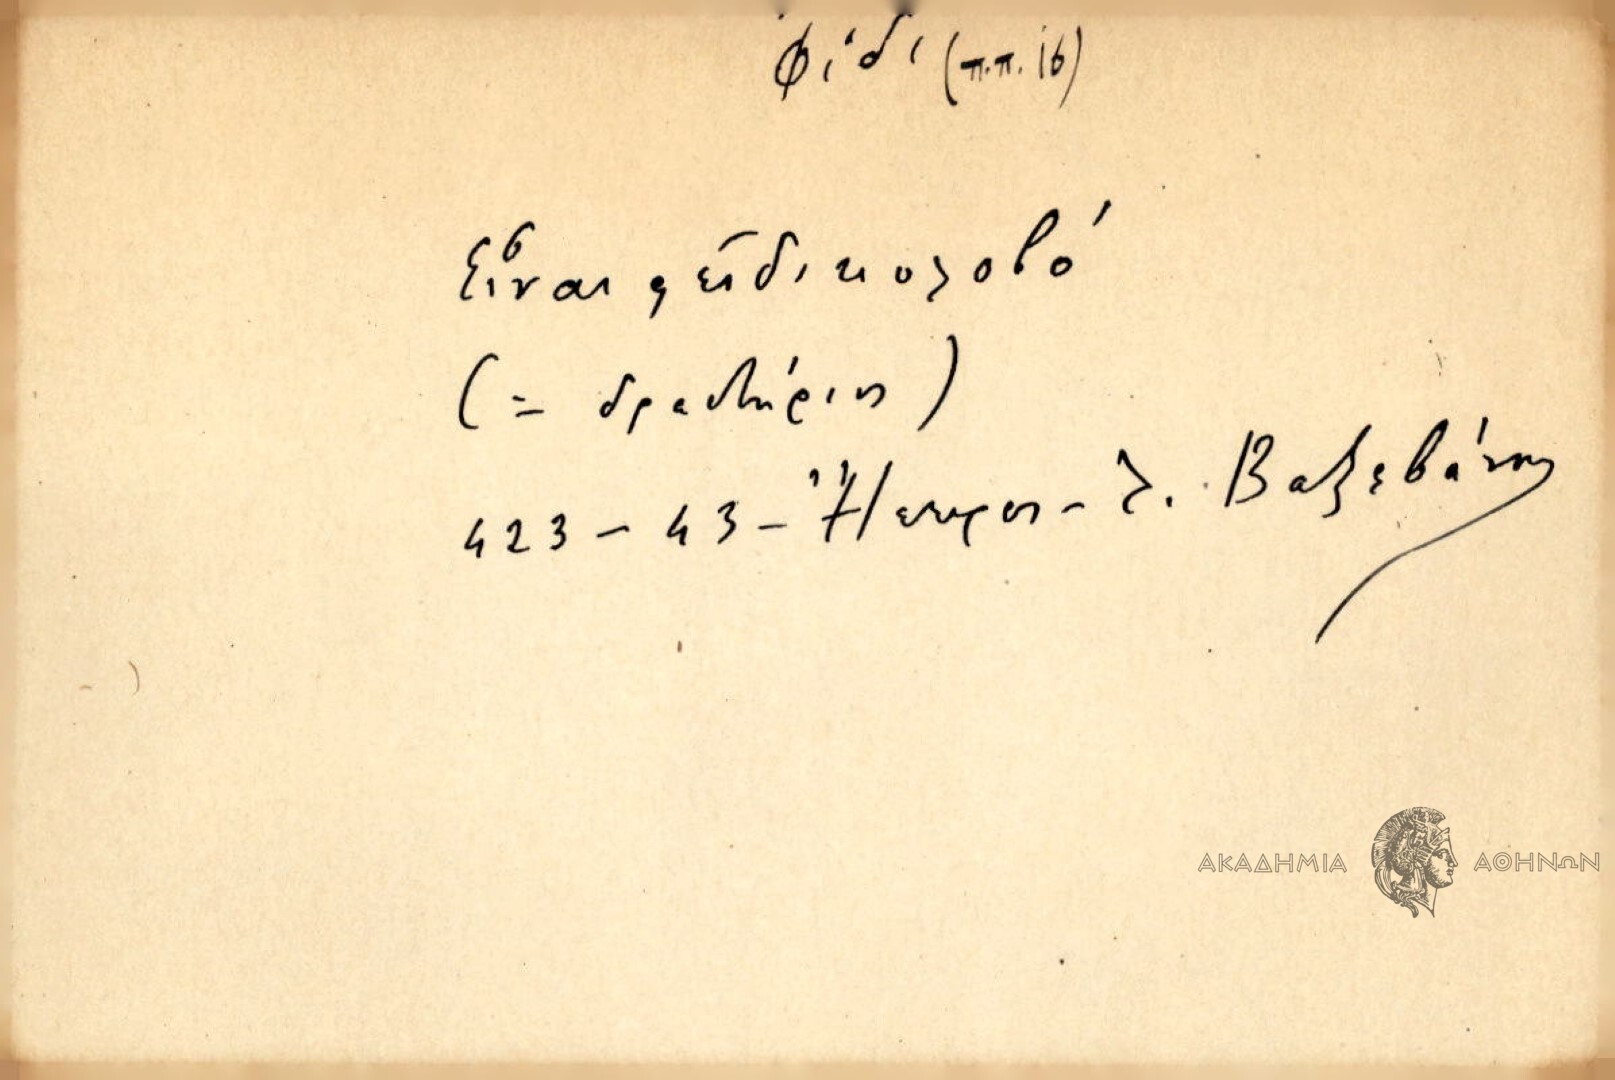 φίδι (π.π. 16)
Εἶναι φεῖδι κολοβό
(= δραστήριος)
423 – 43 – Ἤπειρος – Σ. Βαξεβάνης
ΑΚΑΔΗΜΙΑ ΑΘΗΝΩΝ